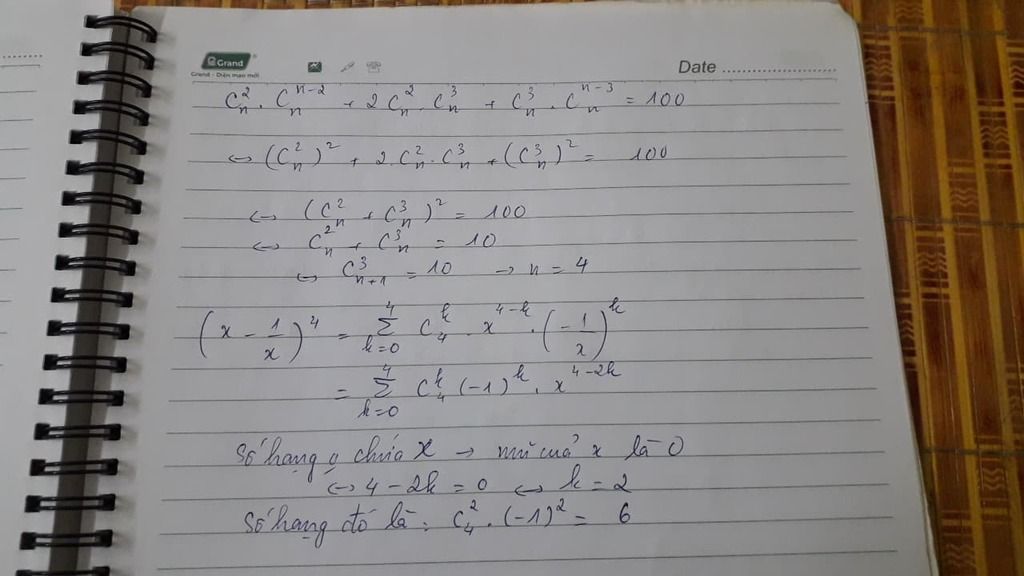 Grand
Grand - Diện mạo mới
Date
C_n^2 . C_n^{n-2} + 2 C_n^2 . C_n^3 + C_n^3 . C_n^{n-3} = 100
↔ (C_n^2)^2 + 2.C_n^2 . C_n^3 + (C_n^3)^2 = 100
↔ (C_n^2 + C_n^3)^2 = 100
↔ C_n^2 + C_n^3 = 10
↔ C_{n+1}^3 = 10 → n = 4
(x - 1/x)^4 = Σ_{k=0}^4 C_4^k . x^{4-k} . (-1/x)^k
= Σ_{k=0}^4 C_4^k (-1)^k . x^{4-2k}
Số hạng o chứa x → mũ của x là 0
↔ 4 - 2k = 0 ↔ k = 2
Số hạng đó là : C_4^2 . (-1)^2 = 6